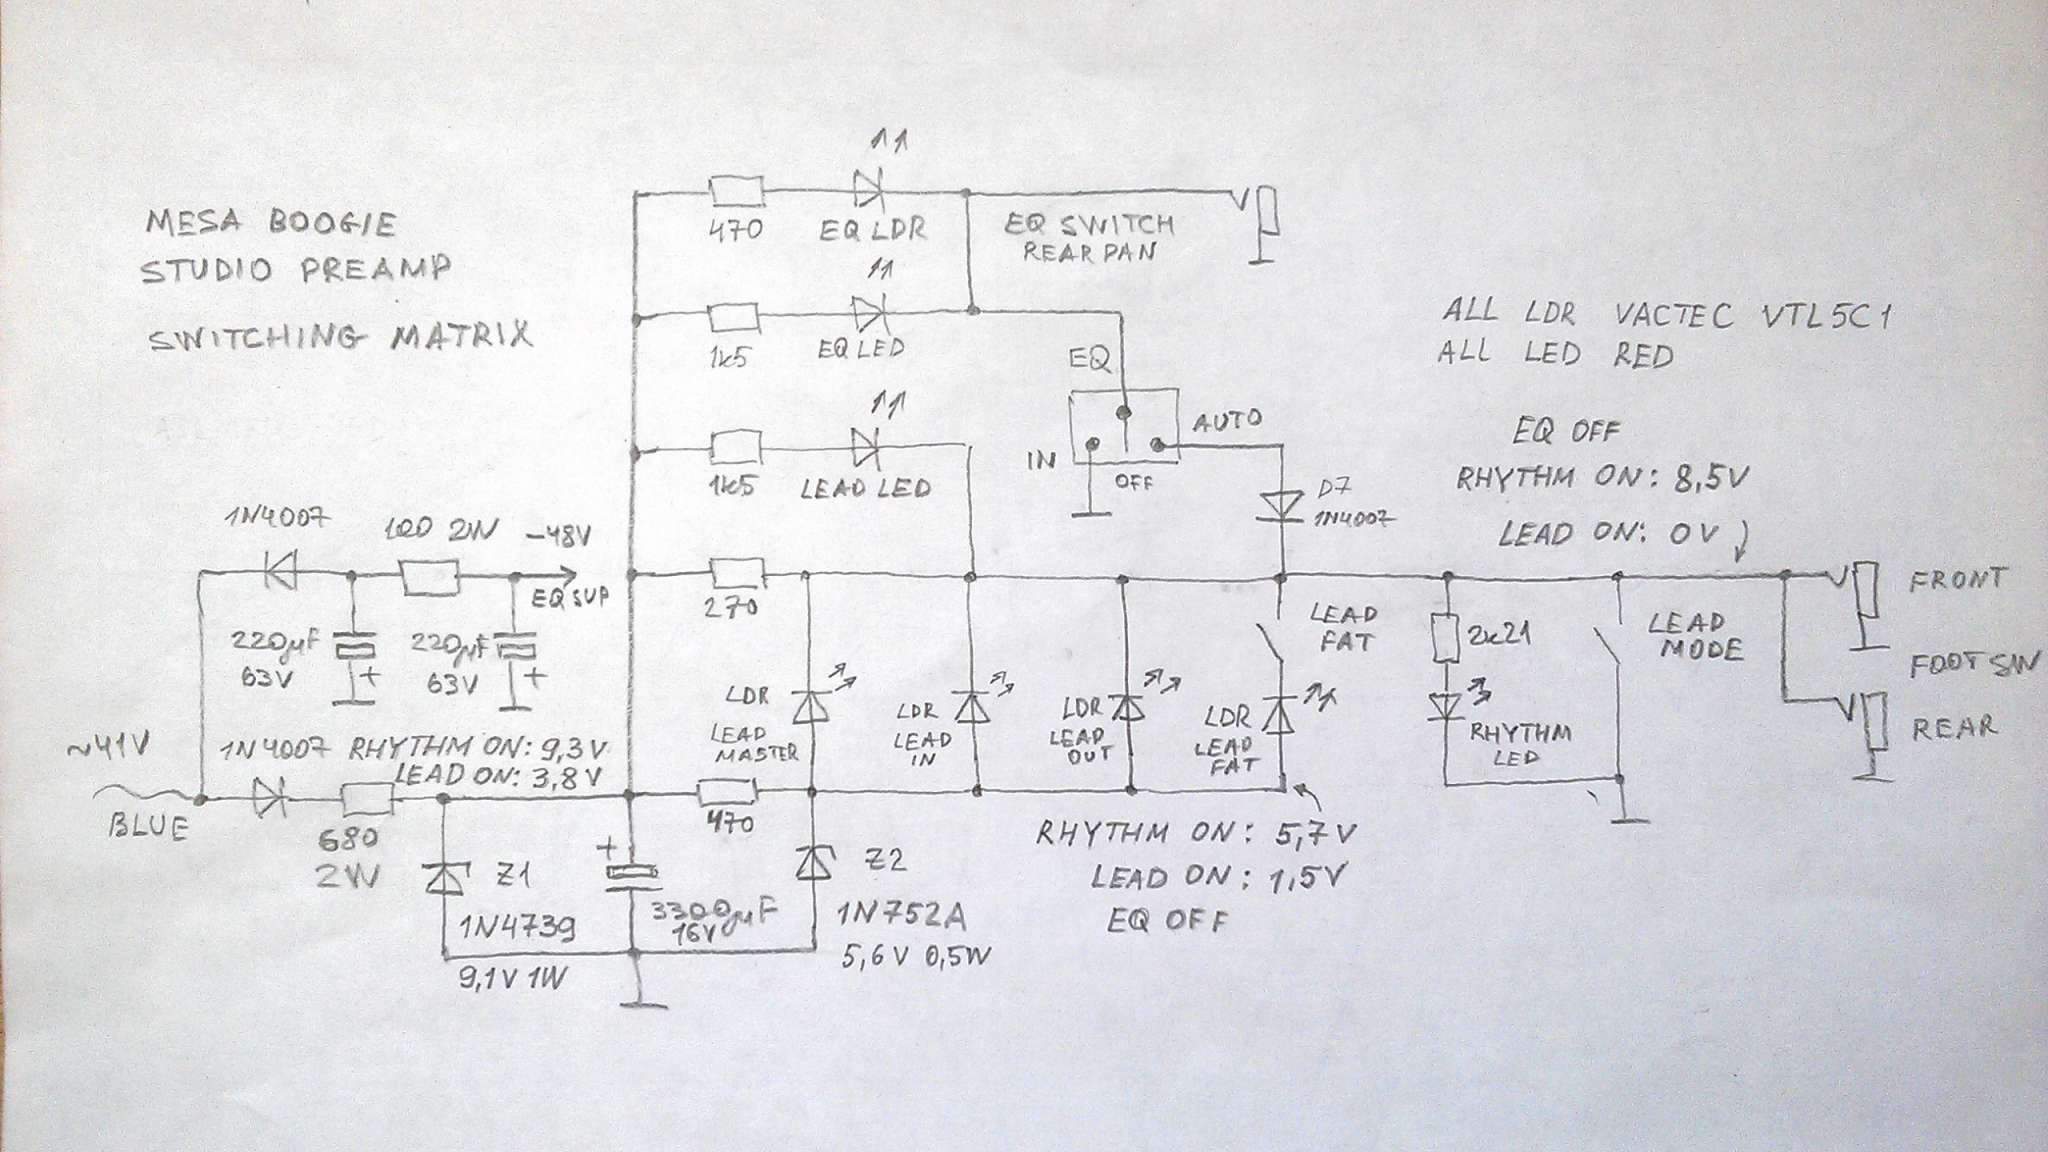 MESA BOOGIE
STUDIO PREAMP
SWITCHING MATRIX
470
EQ LDR
EQ SWITCH
REAR PAN
1k5
EQ LED
EQ
ALL LDR VACTEC VTL5C1
ALL LED RED
1k5
LEAD LED
IN
OFF
AUTO
D7
1N4007
EQ OFF
RHYTHM ON: 8,5V
LEAD ON: 0V
1N4007
100 2W
-48V
EQ SUP
220µF
63V
+
220µF
63V
+
270
LDR
LEAD
MASTER
LDR
LEAD
IN
LDR
LEAD
OUT
LEAD
FAT
LDR
LEAD
FAT
2k21
RHYTHM
LED
LEAD
MODE
FRONT
FOOT SW
REAR
~41V
BLUE
1N4007
RHYTHM ON: 9,3V
LEAD ON: 3,8V
680
2W
Z1
1N4739
9,1V 1W
+
3300µF
16V
470
Z2
1N752A
5,6V 0,5W
RHYTHM ON: 5,7V
LEAD ON: 1,5V
EQ OFF